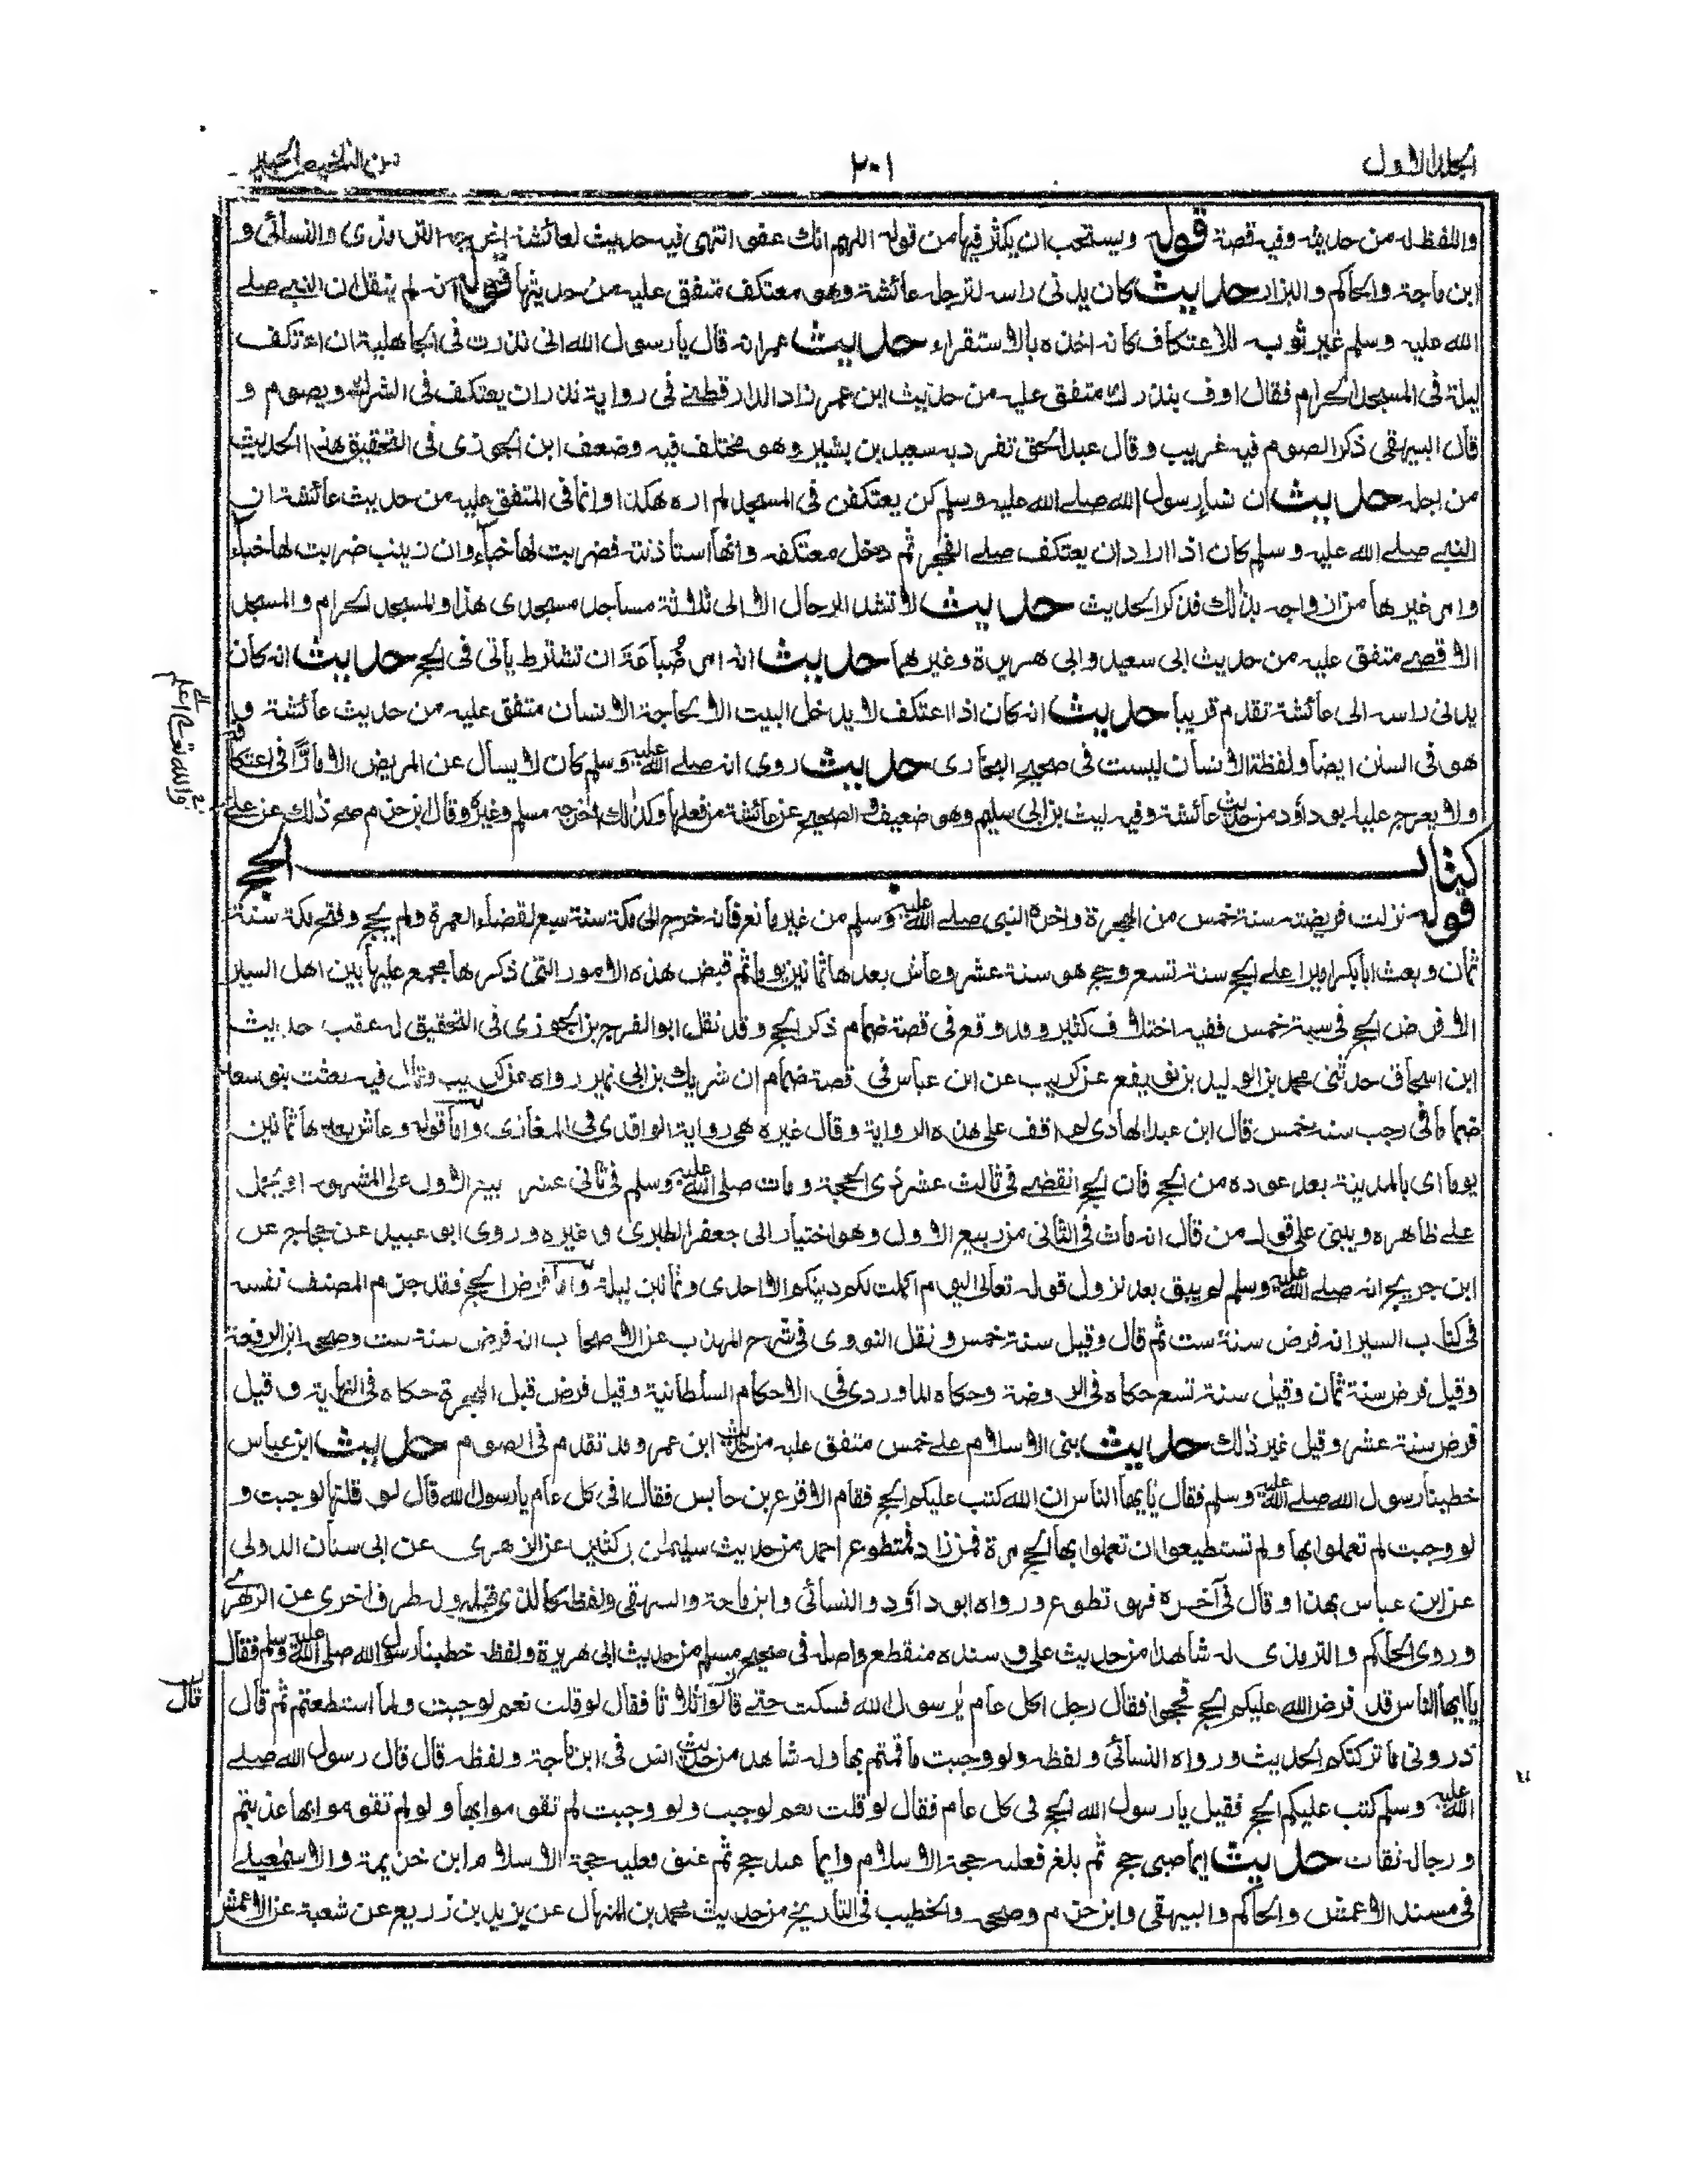 الجلد الاول
٢٠١
من التلخيص الحبير
واللفظ له من حديثه وفيه قصة قوله ويستحب ان يكثر فيها من قوله اللهم انك عفو انتهى فيه حديث لعائشة اخرجه الترمذى والنسائى و
ابن ماجة والحاكم والبزار حديث كان يدنى راسه لترجله عائشة وهو معتكف متفق عليه من حديثها قوله انه لم ينقل ان النبى صلے
الله عليه وسلم غير ثوبه للاعتكاف كانه اخذه بالاستقراء حديث عمر انه قال يا رسول الله انى نذرت فى الجاهلية ان اعتكف
ليلة فى المسجد الحرام فقال اوف بنذرك متفق عليه من حديث ابن عمر زاد الدارقطنے فى رواية نذر ان يعتكف فى الشرك ويصوم و
قال البيهقى ذكر الصوم فيه غريب وقال عبد الحق تفرد به سعيد بن بشير وهو مختلف فيه وضعف ابن الجوزى فى التحقيق هذا الحديث
من اجله حديث ان نساء رسول الله صلے الله عليه وسلم كن يعتكفن فى المسجد لم اره هكذا وانما فى المتفق عليه من حديث عائشة ان
النبے صلے الله عليه وسلم كان اذا اراد ان يعتكف صلے الفجر ثم دخل معتكفه وانها استاذنته فضربت لها خباء وان زينب ضربت لها خباء
وامر غيرها من ازواجه بذلك فذكر الحديث حديث لا تشد الرحال الا الى ثلاثة مساجد مسجدى هذا والمسجد الحرام والمسجد
الاقصے متفق عليه من حديث ابى سعيد وابى هريرة وغيرهما حديث انه امر ضُباعَةَ ان تشترط ياتى فى الحج حديث انه كان
يدنى راسه الى عائشة تقدم قريبا حديث انه كان اذا اعتكف لا يدخل البيت الا لحاجة الانسان متفق عليه من حديث عائشة و
هو فى السنن ايضا ولفظة الانسان ليست فى صحيح البخارى حديث روى انه صلے الله عليه وسلم كان لا يسأل عن المريض الا مارًّا فى اعتكافه
ولا يعرج عليه ابو داؤد من حديث عائشة وفيه ليث بن ابى سليم وهو ضعيف والصحيح عن عائشة من فعلها وكذلك اخرجه مسلم وغيره وقال ابن حزم صح ذلك عن على
والله تعالى اعلم
كتاب الحج
قوله نزلت فريضته سنة خمس من الهجرة واخره النبى صلے الله عليه وسلم من غير مانع فانه خرج الى مكة سنة سبع لقضاء العمرة ولم يحج وفتح مكة سنة
ثمان وبعث ابا بكر اميرا علے الحج سنة تسع وحج هو سنة عشر وعاش بعدها ثمانين يوما ثم قبض هذه الامور التى ذكرها مجمع عليها بين اهل السير
الا فرض الحج فى سنة خمس ففيه اختلاف كثير وقد وقع فى قصة ضمام ذكر الحج وقد نقل ابو الفرج بن الجوزى فى التحقيق له عقب حديث
ابن اسحاق حدثنى محمد بن الوليد بن نويفع عن كريب عن ابن عباس فى قصة ضمام ان شريك بن ابى نمير رواه عن كريب وقال فيه بعثت بنو سعد
ضماما فى رجب سنة خمس قال ابن عبد الهادى لم اقف على هذه الرواية وقال غيره هى رواية الواقدى فى المغازى واما قوله وعاش بعدها ثمانين
يوما اى بالمدينة بعد عوده من الحج فان الحج انقضے فى ثالث عشر ذى الحجة ومات صلى الله عليه وسلم فى ثانى عشر ربيع الاول على المشهور او يحمل
علے ظاهره ويبنى على قول من قال انه مات فى الثانى من ربيع الاول وهو اختيار ابى جعفر الطبرى وغيره وروى ابو عبيد عن حجاج عن
ابن جريج انه صلے الله عليه وسلم لم يبق بعد نزول قوله تعالى اليوم اكملت لكم دينكم الا احدى وثمانين ليلة واما فرض الحج فقد جزم المصنف نفسه
فى كتاب السير انه فرض سنة ست ثم قال وقيل سنة خمس ونقل النووى فى شرح المهذب عن الاصحاب انه فرض سنة ست وصححه ابن الرفعة
وقيل فرض سنة ثمان وقيل سنة تسع حكاه فى الروضة وحكاه الماوردى فى الاحكام السلطانية وقيل فرض قبل الهجرة حكاه فى النهاية وقيل
فرض سنة عشر وقيل غير ذلك حديث بنى الاسلام علے خمس متفق عليه من حديث ابن عمر وقد تقدم فى الصوم حديث ابن عباس
خطبنا رسول الله صلے الله عليه وسلم فقال يا ايها الناس ان الله كتب عليكم الحج فقام الاقرع بن حابس فقال افى كل عام يا رسول الله قال لو قلتها لوجبت و
لو وجبت لم تعملوا بها ولم تستطيعوا ان تعملوا بها الحج مرة فمن زاد فمتطوع احمد من حديث سليمن بن كثير عن الزهرى عن ابى سنان الدولى
عن ابن عباس بهذا وقال فى آخره فهو تطوع ورواه ابو داؤد والنسائى وابن ماجة والبيهقى ولفظه كالذى قبله وله طرق اخرى عن الزهرے
وروى الحاكم والترمذى له شاهدا من حديث على وسنده منقطع واصله فى صحيح مسلم من حديث ابى هريرة ولفظه خطبنا رسول الله صلى الله عليه وسلم فقال
يا ايها الناس قد فرض الله عليكم الحج فحجوا فقال رجل اكل عام يا رسول الله فسكت حتے قالها ثلاثا فقال لو قلت نعم لوجبت ولما استطعتم ثم قال
قال
ذرونى ما تركتكم الحديث ورواه النسائى ولفظه ولو وجبت ما قمتم بها وله شاهد من حديث انس فى ابن ماجة ولفظه قال قال رسول الله صلے
الله عليه وسلم كتب عليكم الحج فقيل يا رسول الله الحج فى كل عام فقال لو قلت نعم لوجب ولو وجبت لم تقوموا بها ولو لم تقوموا بها عذبتم
ورجاله ثقات حديث ايما صبى حج ثم بلغ فعليه حجة الاسلام وايما عبد حج ثم عتق فعليه حجة الاسلام ابن خزيمة والاسمعيلے
فى مسند الاعمش والحاكم والبيهقى وابن حزم وصححه والخطيب فى التاريخ من حديث محمد بن المنهال عن يزيد بن زريع عن شعبة عن الاعمش